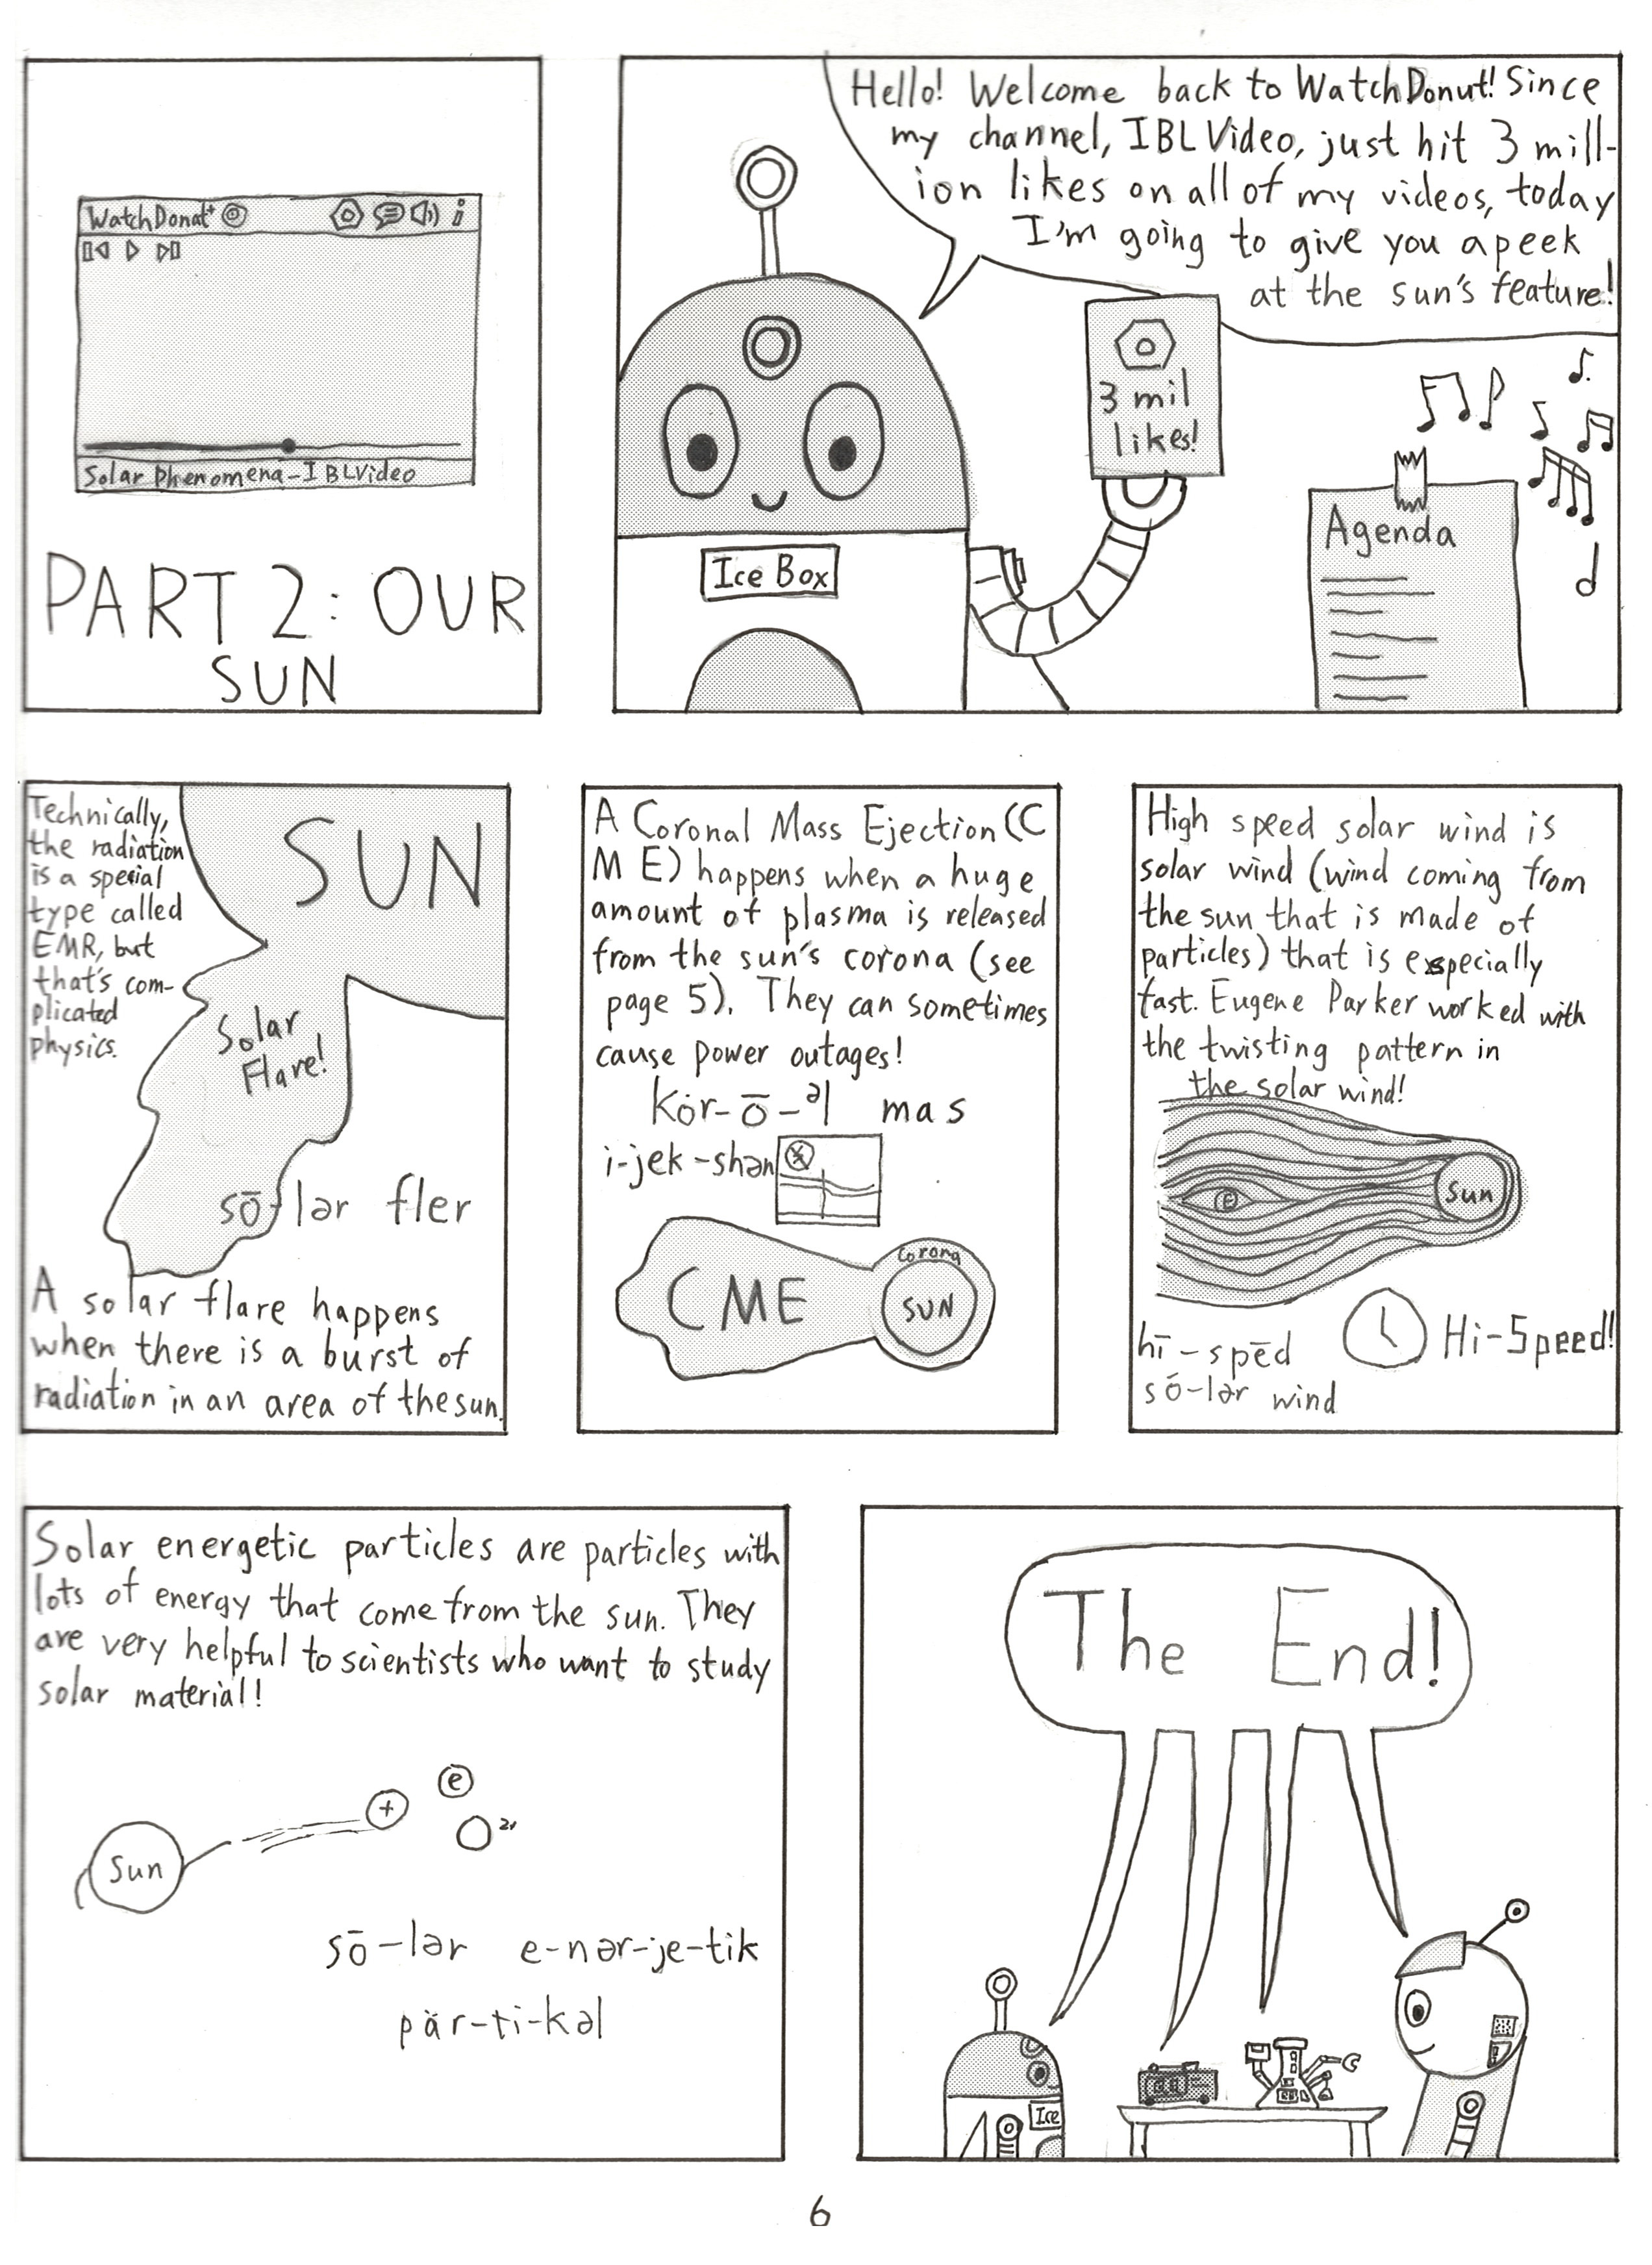 WatchDonut
Solar Phenomena-IBLVideo
PART 2: OUR
SUN
Hello! Welcome back to WatchDonut! Since
my channel, IBLVideo, just hit 3 mill-
ion likes on all of my videos, today
I'm going to give you a peek
at the sun's feature!
3 mil
likes!
Ice Box
Agenda
Technically,
the radiation
is a special
type called
EMR, but
that's com-
plicated
physics.
SUN
Solar
Flare!
sō-lər fler
A solar flare happens
when there is a burst of
radiation in an area of the sun.
A Coronal Mass Ejection (C
M E) happens when a huge
amount of plasma is released
from the sun's corona (see
page 5). They can sometimes
cause power outages!
kȯr-ō-əl mas
i-jek-shən
Corona
CME
SUN
High speed solar wind is
solar wind (wind coming from
the sun that is made of
particles) that is especially
fast. Eugene Parker worked with
the twisting pattern in
the solar wind!
e
Sun
Hi-Speed!
hī-spēd
sō-lər wind
Solar energetic particles are particles with
lots of energy that come from the sun. They
are very helpful to scientists who want to study
solar material!
e
+
2+
Sun
sō-lər e-nər-je-tik
pär-ti-kəl
The End!
Ice
6